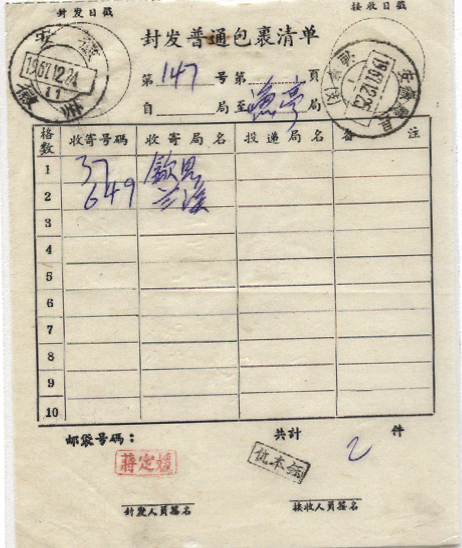 封发日戳
接收日戳
封发普通包裹清单
第147号第 頁
自 局至渔亭局
安徽
1967.12.24
11
1967.12.25
格数 收寄号码 收寄局名 投递局名 备注
1 37 歙县
2 649 兰溪
3
4
5
6
7
8
9
10
邮袋号码:
共计 2 件
蔣定媛
封发人员签名
接收人员签名